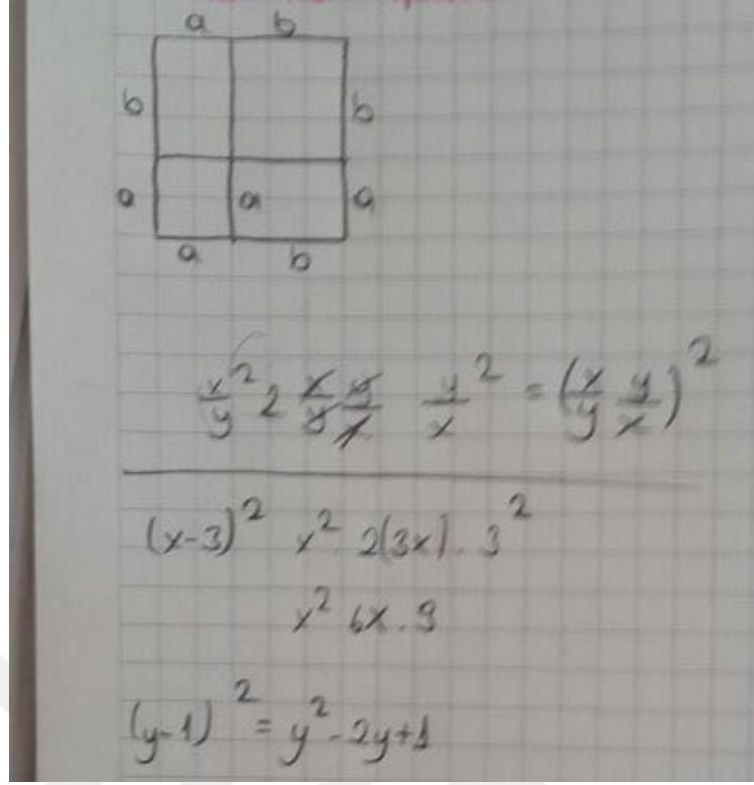 a b
b b
a a a
a b
x/y² 2 x/y y/x y/x² = (x/y y/x)²
(x-3)² x² 2(3x). 3²
x² 6x . 9
(y-1)² = y²-2y+1